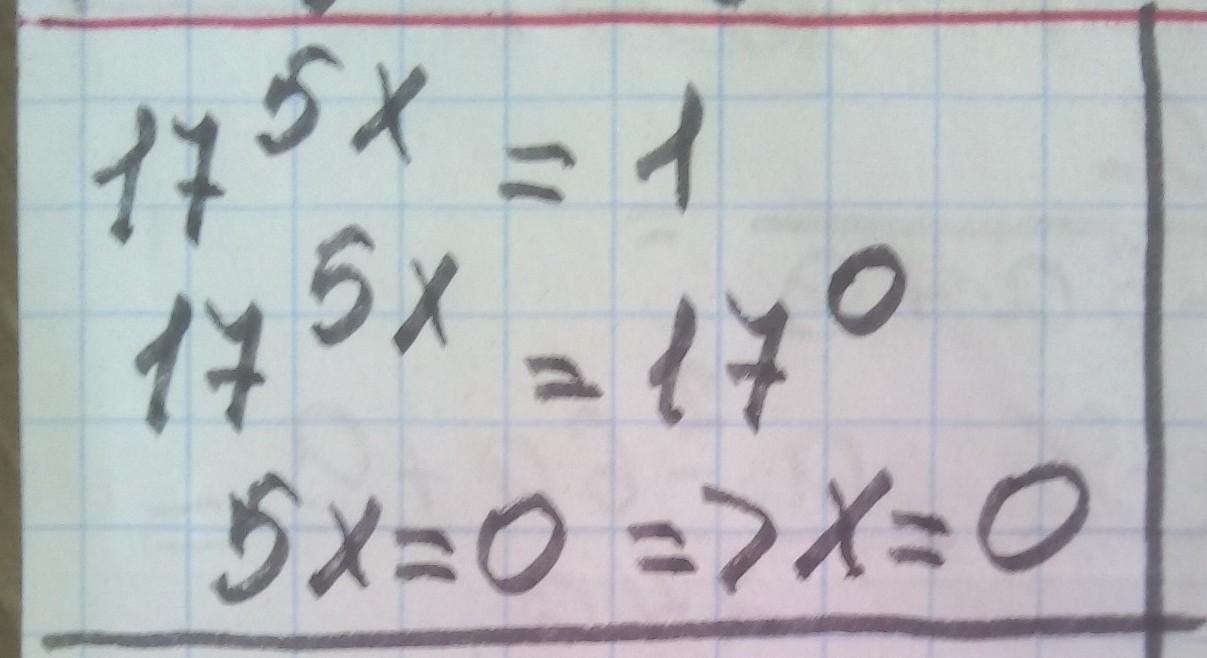 17^{5x} = 1
17^{5x} = 17^{0}
5x=0 => x=0